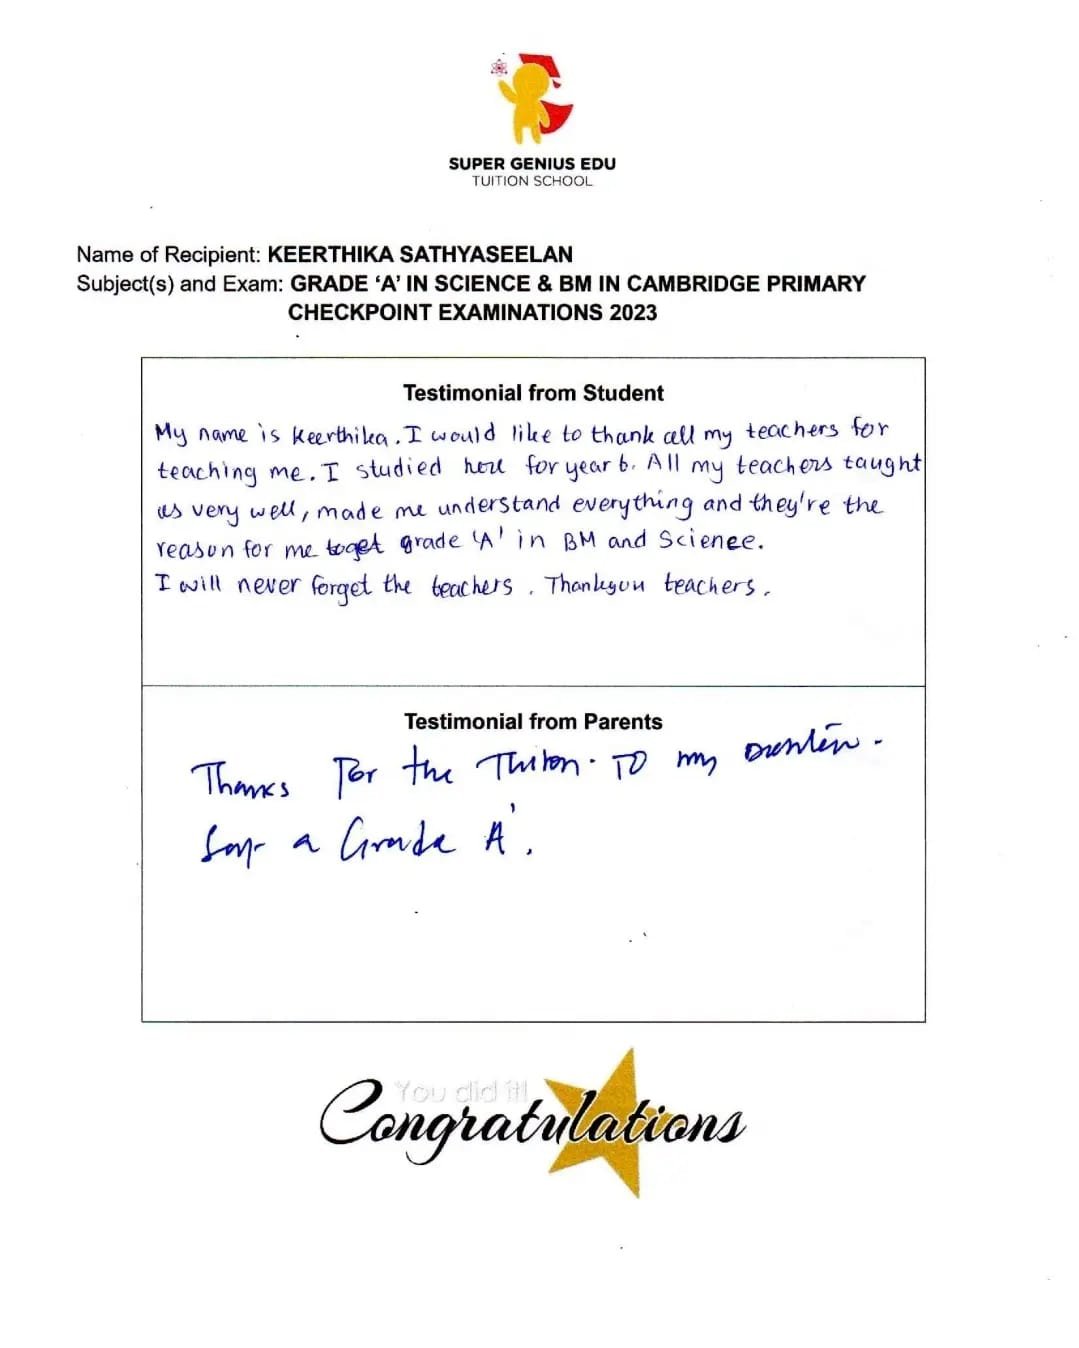 SUPER GENIUS EDU
TUITION SCHOOL
Name of Recipient: KEERTHIKA SATHYASEELAN
Subject(s) and Exam: GRADE ‘A’ IN SCIENCE & BM IN CAMBRIDGE PRIMARY
CHECKPOINT EXAMINATIONS 2023
Testimonial from Student
My name is Keerthika. I would like to thank all my teachers for
teaching me. I studied here for year 6. All my teachers taught
us very well, made me understand everything and they're the
reason for me to get grade 'A' in BM and Science.
I will never forget the teachers. Thankyou teachers.
Testimonial from Parents
Thanks For the To my
a Grade A'.
You did it!
Congratulations